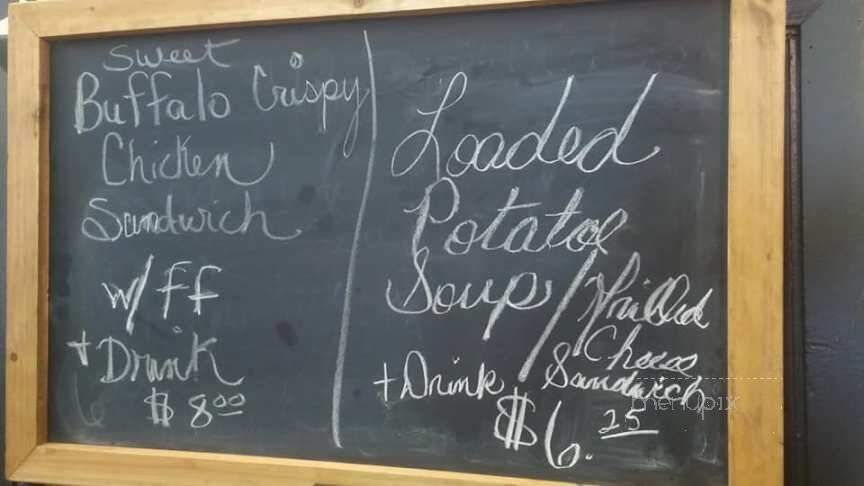 Sweet
Buffalo Crispy
Chicken
Sandwich
w/ff
+ Drink
$ 8.00
Loaded
Potatoe
Soup / Grilled
Cheese
Sandwich
+ Drink
$6.25
menupix